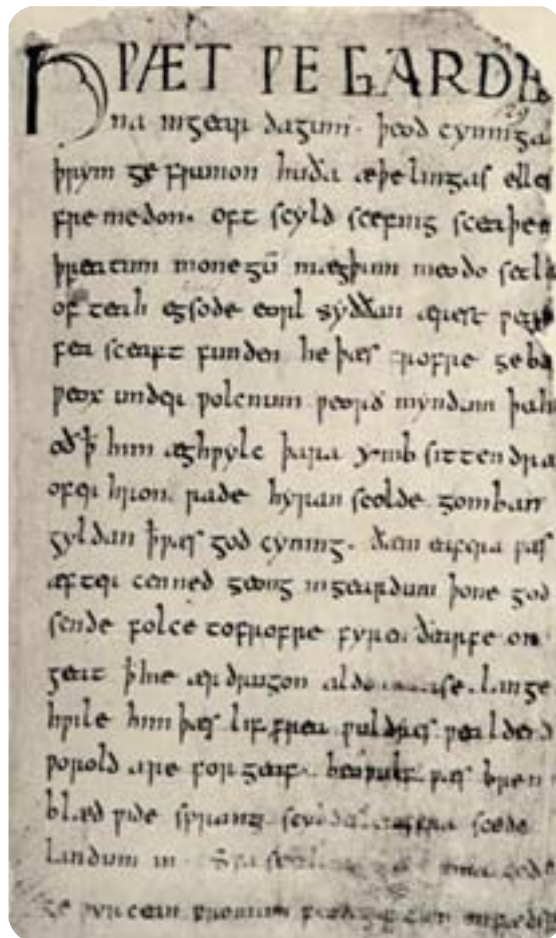 HǷÆT ǷE GARDE
129
na ingear dagum. þeod cyninga
þrym ge frunon huða æþelingas elle
fre medon. oft scyld scefing sceaþe
þreatum monegū mægþum meodo setla
of teah egsode eorl syððan ærest ƿear
fea sceaft funden he þæs frofre geba
ƿeox under ƿolcnum ƿeorð myndum þah
oð ꝥ him æghƿylc þara ymb sittendra
ofer hron rade hyran scolde gomban
gyldan ꝥ ƿæs god cyning. ðæm eafera ƿæs
æfter cenned geong ingeardum þone god
sende folce tofrofre fyren ðearfe on
geat ꝥ hie ær drugon aldor ase. lange
hƿile him þæs lif frea ƿuldres ƿealdend
ƿorold are for geaf. beoƿulf ƿæs breme
blæd ƿide sprang scyldes eafera scede
landum in. Sƿa sceal uma gode
ge ƿyrcean fromum feoh giftum